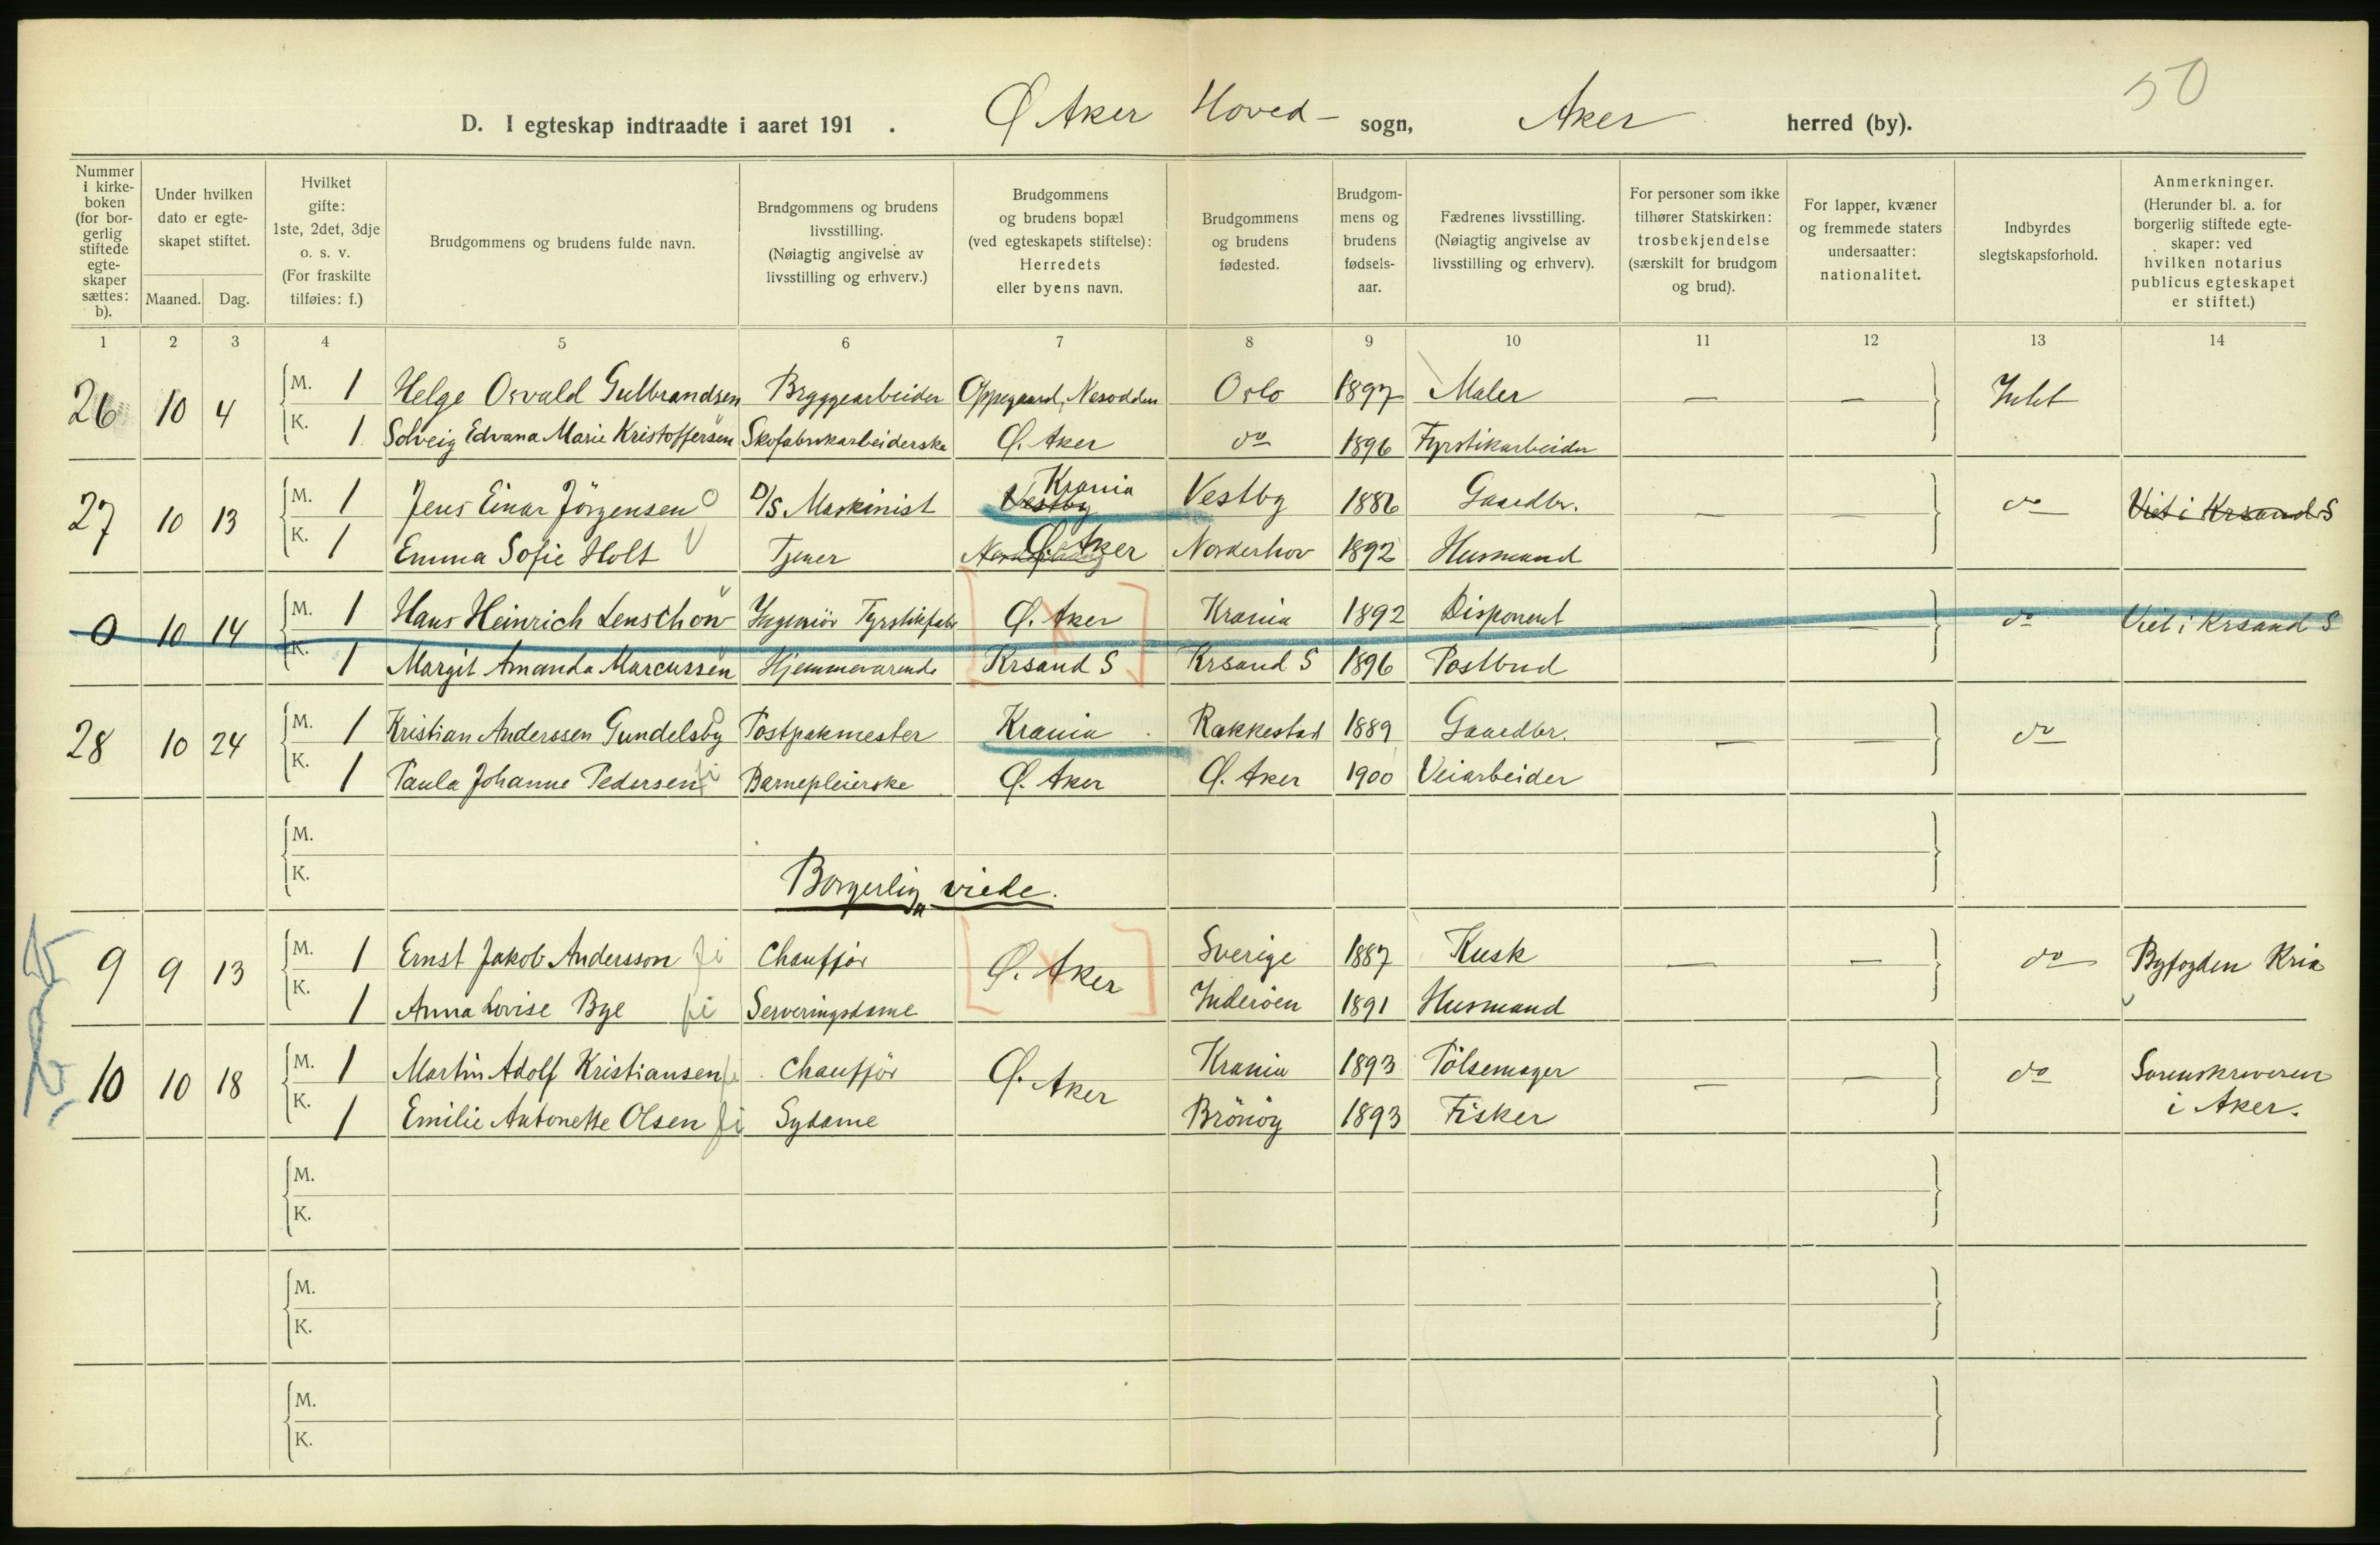 50
D. I egteskap indtraadte i aaret 191 . Ø Aker Hoved- sogn, Aker herred (by).
Nummer i kirke-boken (for bor-gerlig stiftede egte-skaper sættes: b).
Under hvilken dato er egte-skapet stiftet.
Maaned. Dag.
Hvilket gifte: 1ste, 2det, 3dje o. s. v. (For fraskilte tilføies: f.)
Brudgommens og brudens fulde navn.
Brudgommens og brudens livsstilling. (Nøiagtig angivelse av livsstilling og erhverv.)
Brudgommens og brudens bopæl (ved egteskapets stiftelse): Herredets eller byens navn.
Brudgommens og brudens fødested.
Brudgom-mens og brudens fødsels-aar.
Fædrenes livsstilling. (Nøiagtig angivelse av livsstilling og erhverv).
For personer som ikke tilhører Statskirken: trosbekjendelse (særskilt for brudgom og brud).
For lapper, kvæner og fremmede staters undersaatter: nationalitet.
Indbyrdes slegtskapsforhold.
Anmerkninger. (Herunder bl. a. for borgerlig stiftede egte-skaper: ved hvilken notarius publicus egteskapet er stiftet.)
1 2 3 4 5 6 7 8 9 10 11 12 13 14
26 10 4 M. 1 Helge Osvald Gulbrandsen Bryggearbeider Oppegaard, Nesodden Oslo 1897 Maler — — Intet
K. 1 Solveig Edvana Marie Kristoffersen Skofabrikarbeiderske Ø. Aker do 1896 Fyrstikarbeider
27 10 13 M. 1 Jens Einar Jörgensen D/S. Maskinist Vestby Krania Vestby 1886 Gaardbr. — — do Viet i Krsand S
K. 1 Emma Sofie Holt Tjener Ø. Aker Norderhov 1892 Husmand
0 10 14 M. 1 Hans Heinrich Lenschow Ingeniör Fyrstikfabr Ø. Aker Krania 1892 Disponent — — do Viet i Krsand S
K. 1 Margit Amanda Marcussen Hjemmeværende Krsand S Krsand S 1896 Postbud
28 10 24 M. 1 Kristian Anderssen Gundelsby Postpakmester Krania Rakkestad 1889 Gaardbr. — — do
K. 1 Paula Johanne Pedersen Barnepleierske Ø. Aker Ø. Aker 1900 Veiarbeider
M.
K.
Borgerlig viede.
9 9 13 M. 1 Ernst Jakob Andersson fi Chauffør Ø. Aker Sverige 1887 Kusk — — do Byfogden Kria
K. 1 Anna Lovise Bye fi Serveringsdame Inderöen 1891 Husmand
10 10 18 M. 1 Martin Adolf Kristiansen fi Chauffør Ø. Aker Krania 1893 Pölsemager — — do Sorenskriveren
K. 1 Emilie Antonette Olsen fi Sydame Brönöy 1893 Fisker i Aker.
M.
K.
M.
K.
M.
K.